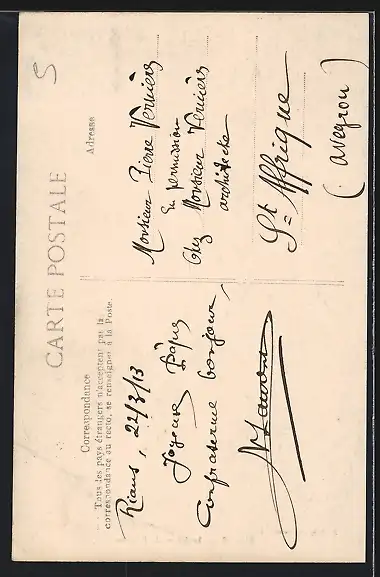 5
CARTE POSTALE
Correspondance
Tous les pays étrangers n'acceptent pas la
correspondance au recto, se renseigner à la Poste.
Adresse
Rians, 22/3/13
Joyeuses Pâques
Confraternel bonjour,
Monsieur Pierre Vernière
en permission
Chez Monsieur Vernière
architecte
St Affrique
(Aveyron)